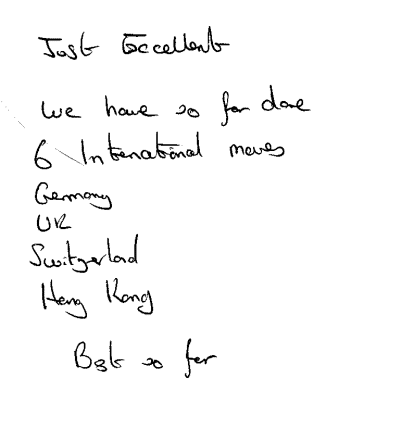 Just Excellent
We have so far done
6 International moves
Germany
UK
Switzerland
Hong Kong
Best so far